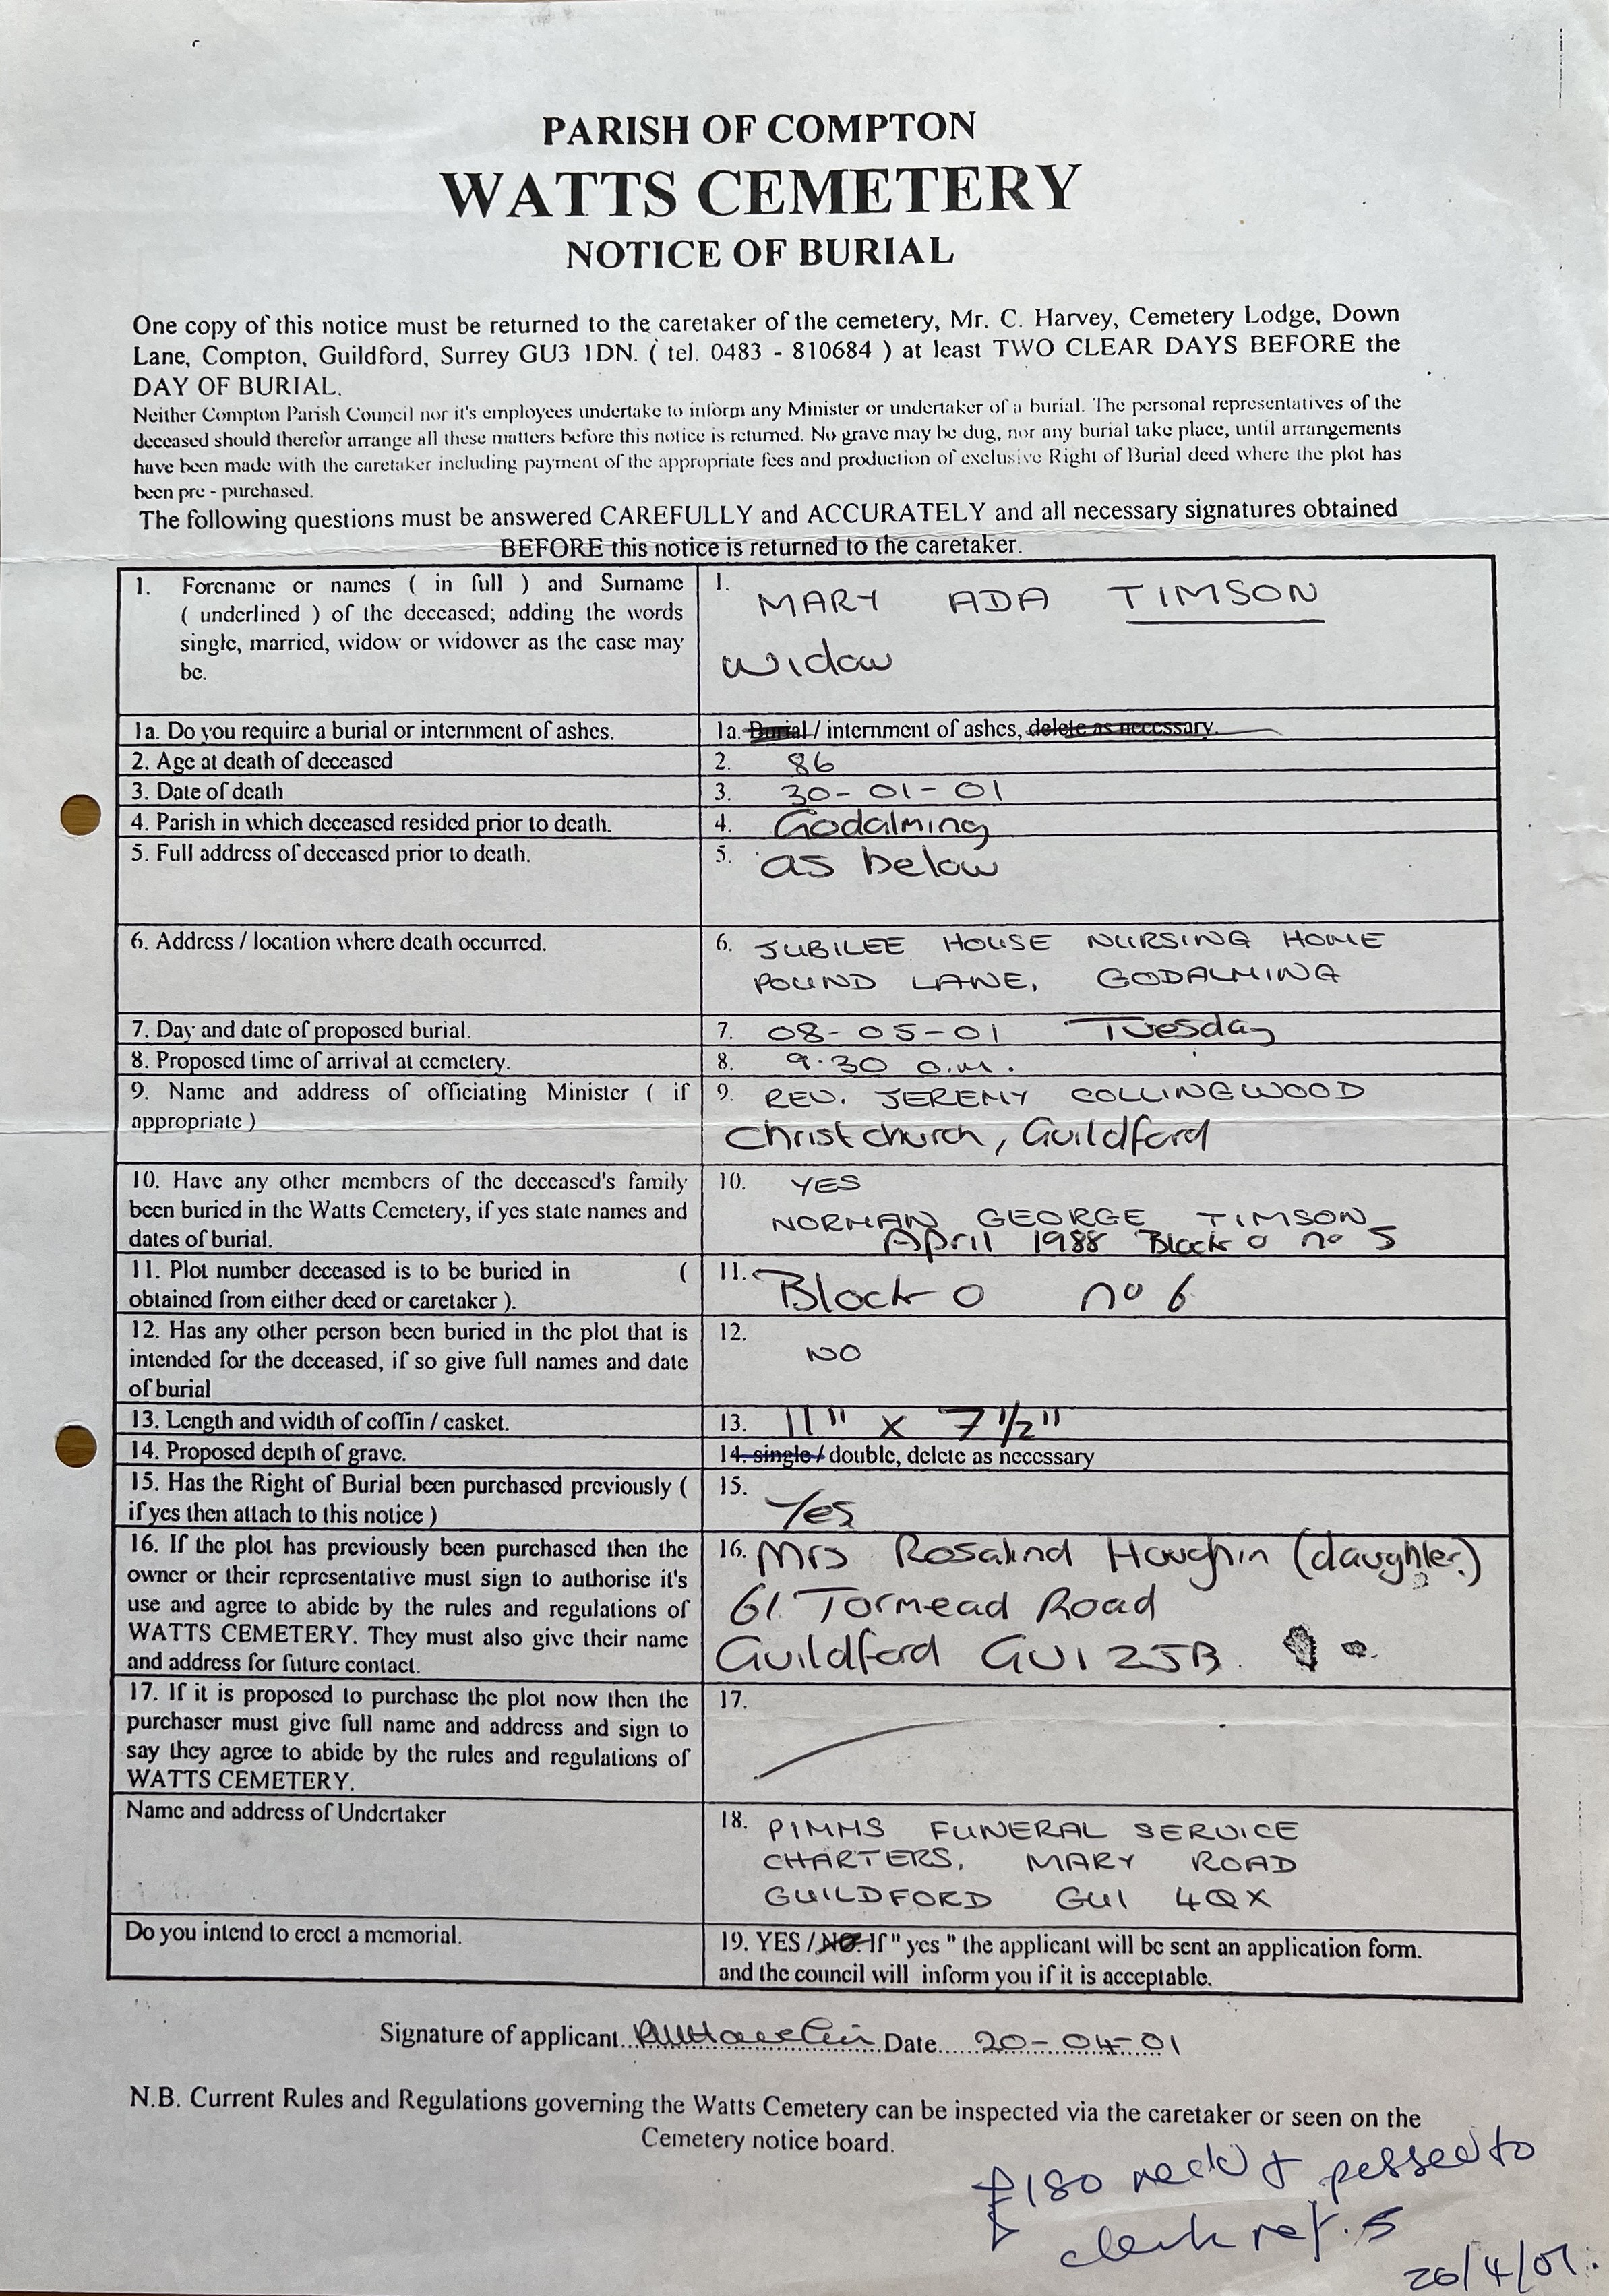 PARISH OF COMPTON
WATTS CEMETERY
NOTICE OF BURIAL
One copy of this notice must be returned to the caretaker of the cemetery, Mr. C. Harvey, Cemetery Lodge, Down
Lane, Compton, Guildford, Surrey GU3 1DN. ( tel. 0483 - 810684 ) at least TWO CLEAR DAYS BEFORE the
DAY OF BURIAL.
Neither Compton Parish Council nor it's employees undertake to inform any Minister or undertaker of a burial. The personal representatives of the
deceased should therefor arrange all these matters before this notice is returned. No grave may be dug, nor any burial take place, until arrangements
have been made with the caretaker including payment of the appropriate fees and production of exclusive Right of Burial deed where the plot has
been pre - purchased.
The following questions must be answered CAREFULLY and ACCURATELY and all necessary signatures obtained
BEFORE this notice is returned to the caretaker.
1. Forename or names ( in full ) and Surname
( underlined ) of the deceased; adding the words
single, married, widow or widower as the case may
be.
1. MARY ADA TIMSON
widow
1a. Do you require a burial or internment of ashes.
1a. Burial / internment of ashes, delete as necessary.
2. Age at death of deceased
2. 86
3. Date of death
3. 30-01-01
4. Parish in which deceased resided prior to death.
4. Godalming
5. Full address of deceased prior to death.
5. as below
6. Address / location where death occurred.
6. JUBILEE HOUSE NURSING HOME
POUND LANE, GODALMING
7. Day and date of proposed burial.
7. 08-05-01 Tuesday
8. Proposed time of arrival at cemetery.
8. 9.30 a.m.
9. Name and address of officiating Minister ( if
appropriate )
9. REV. JEREMY COLLINGWOOD
Christchurch, Guildford
10. Have any other members of the deceased's family
been buried in the Watts Cemetery, if yes state names and
dates of burial.
10. YES
NORMAN GEORGE TIMSON
April 1988 Block O no 5
11. Plot number deceased is to be buried in (
obtained from either deed or caretaker ).
11. Block O no 6
12. Has any other person been buried in the plot that is
intended for the deceased, if so give full names and date
of burial
12.
NO
13. Length and width of coffin / casket.
13. 11" x 7 1/2"
14. Proposed depth of grave.
14. single / double, delete as necessary
15. Has the Right of Burial been purchased previously (
if yes then attach to this notice )
15.
Yes
16. If the plot has previously been purchased then the
owner or their representative must sign to authorise it's
use and agree to abide by the rules and regulations of
WATTS CEMETERY. They must also give their name
and address for future contact.
16. Mrs Rosalind Houghin (daughter)
61 Tormead Road
Guildford GU1 2JB.
17. If it is proposed to purchase the plot now then the
purchaser must give full name and address and sign to
say they agree to abide by the rules and regulations of
WATTS CEMETERY.
17.
Name and address of Undertaker
18. PIMMS FUNERAL SERVICE
CHARTERS, MARY ROAD
GUILDFORD GU1 4QX
Do you intend to erect a memorial.
19. YES / NO. If " yes " the applicant will be sent an application form.
and the council will inform you if it is acceptable.
Signature of applicant Date 20-04-01
N.B. Current Rules and Regulations governing the Watts Cemetery can be inspected via the caretaker or seen on the
Cemetery notice board.
£180 recd & passed to
clerk ref. 5
26/4/01.